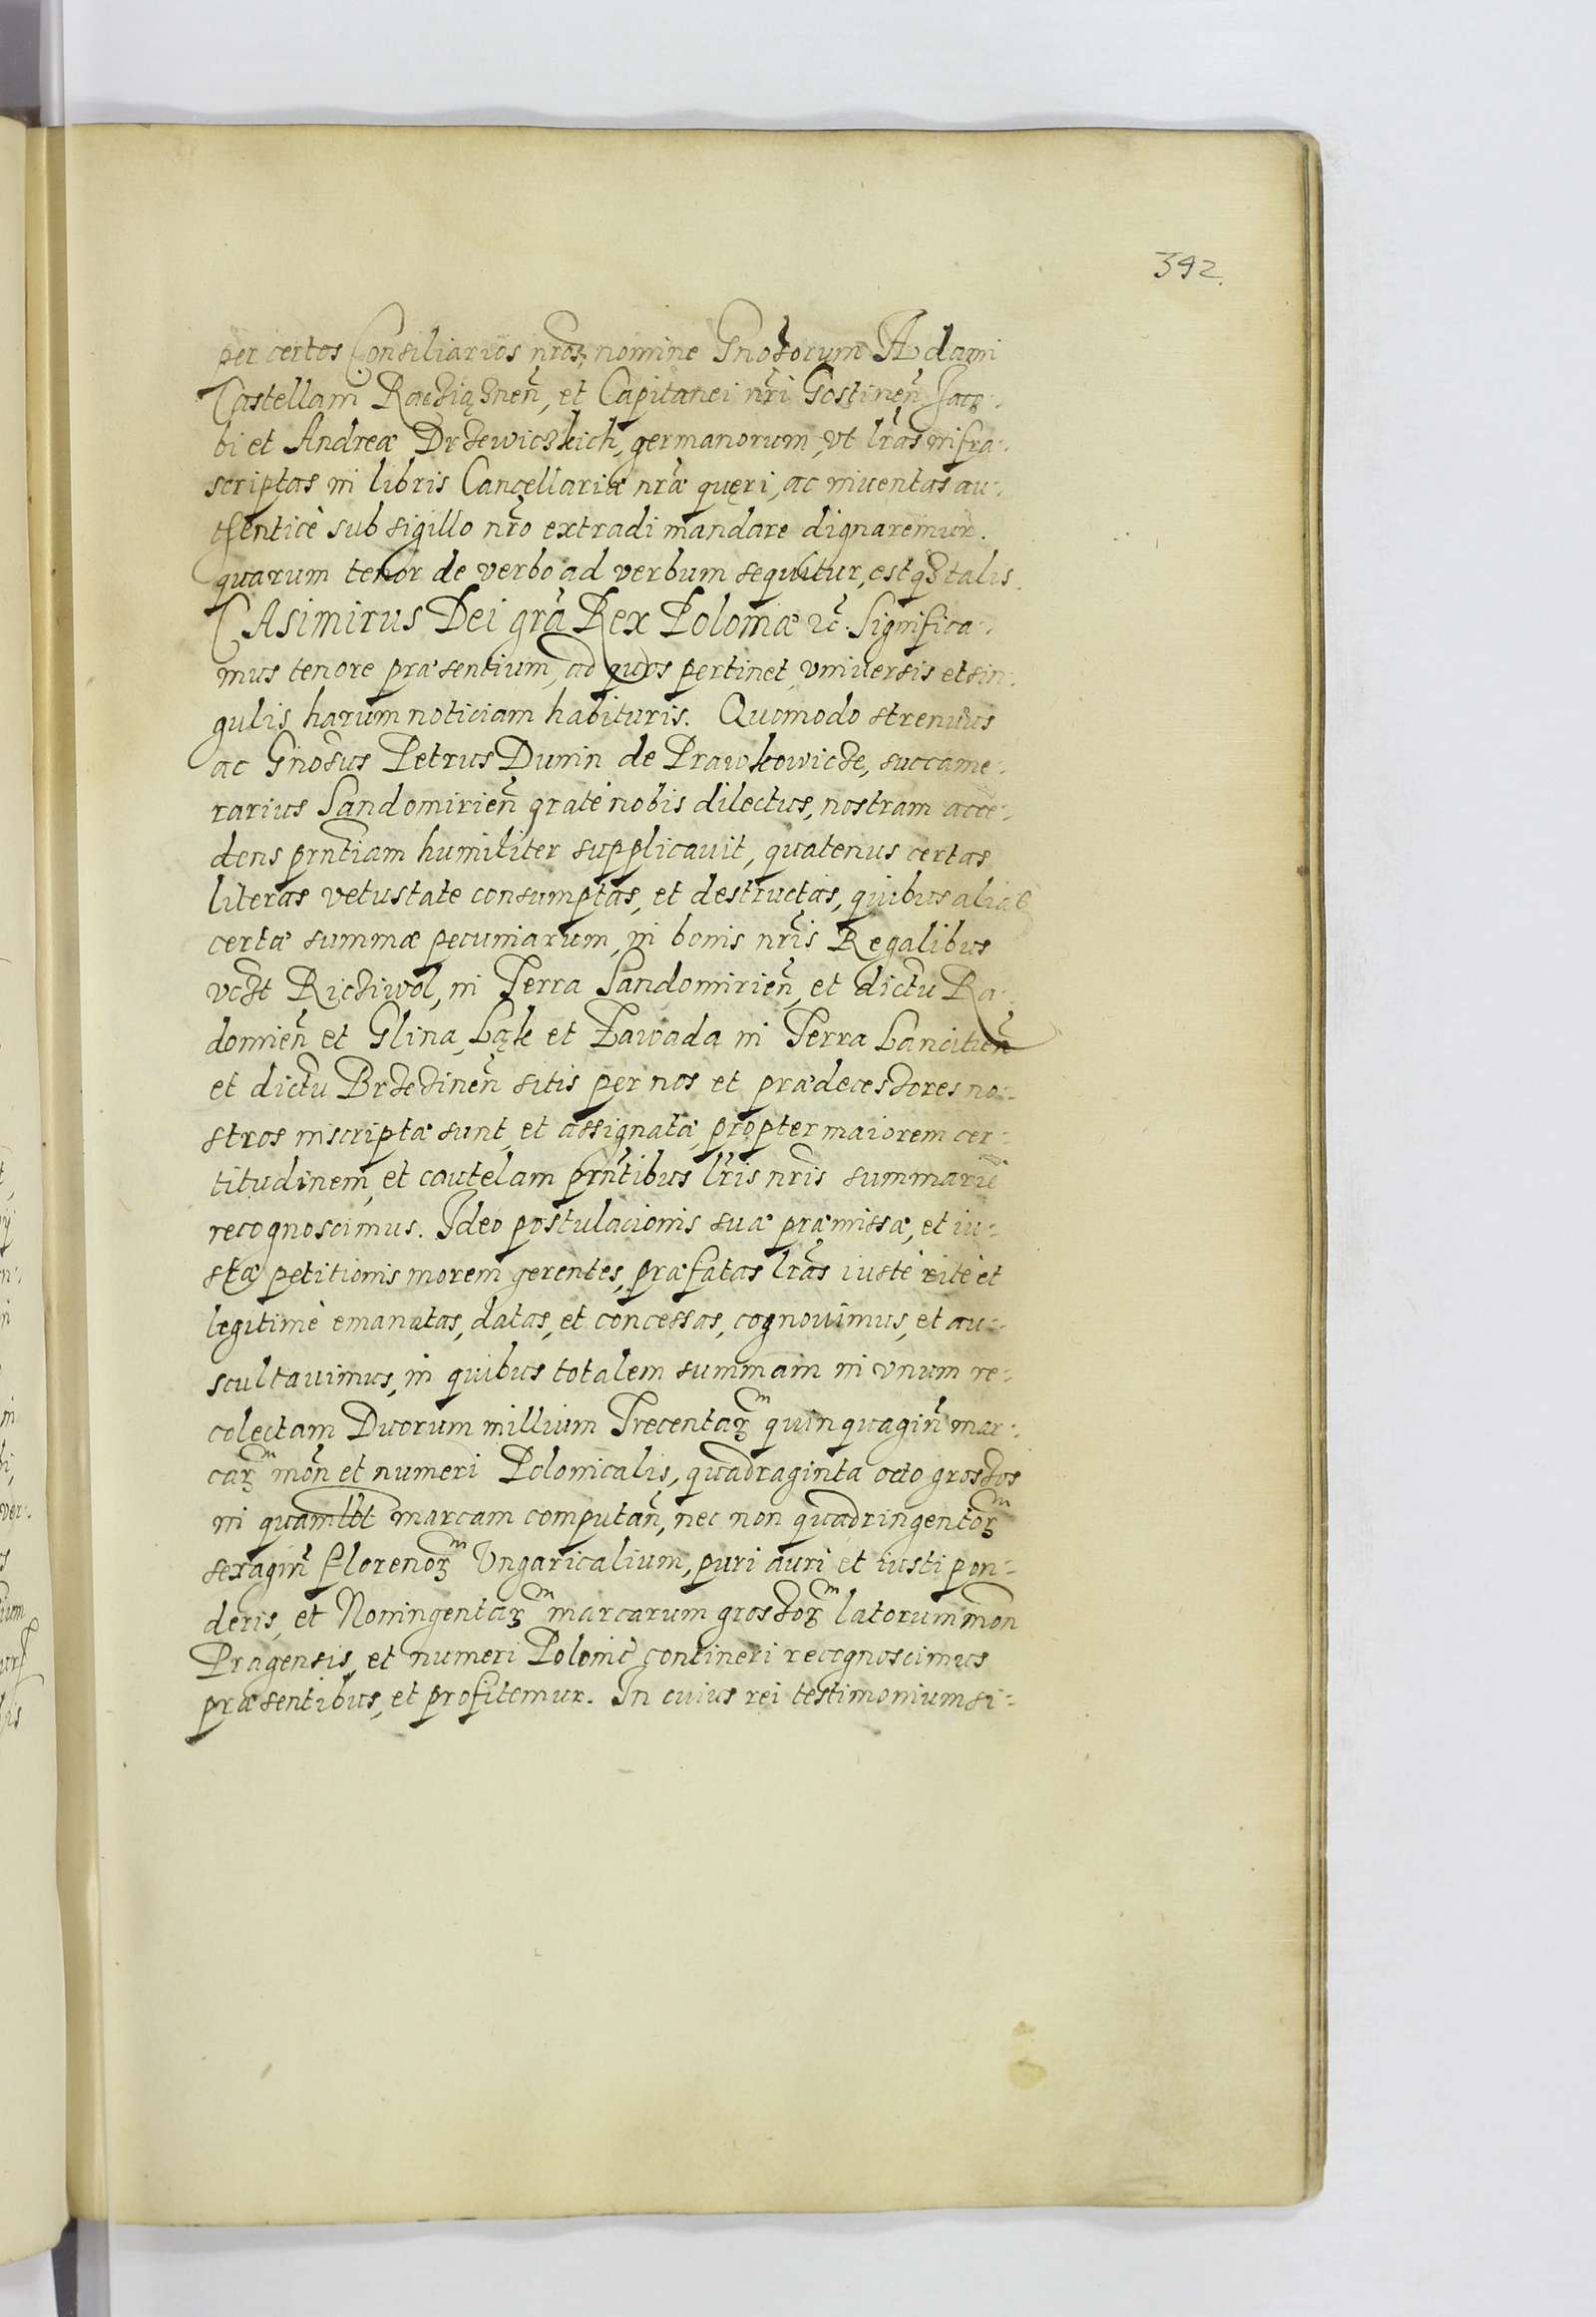 392.
per certos Consiliarios nr̃os, nomine Gnosorum Adami
Castellani Racziąznen̄, et Capitanei nr̃i Gostinen̄ Jaco-
bi et Andreæ Drzewiczkich, germanorum, vt lr̃as infra-
scriptas in libris Cancellariæ nr̃æ quęri, ac inuentas au-
thenticè sub sigillo nr̃o extradi mandare dignaremur.
quarum tenor de verbo ad verbum sequitur, estq3 talis.
CAsimirus Dei gr̃a Rex Poloniæ &c̃. Significa-
mus tenore præsentium, ad quos pertinet, vniuersis et sin-
gulis harum noticiam habituris. Quomodo strenuus
ac Gnosus Petrus Dunin de Prawkowicze, succame-
rarius Sandomirien̄ gratè nobis dilectus, nostram acce-
dens prñtiam humiliter supplicauit, quatenus certas
literas vetustate consumptas, et destructas, quibus aliæ
certæ summæ pecuniarum, in bonis nr̃is Regalibus
vczt Ricziwol, in Terra Sandomirien̄, et dictu Ra-
domien̄ et Glina, Łąk et Zawada in Terra Lancitien̄
et dictu Brzezinen̄ sitis per nos et prædecessores no-
stros inscriptæ sunt, et assignatæ, propter maiorem cer-
titudinem, et cautelam prñtibus lr̃is nr̃is summariè
recognoscimus. Ideo postulacionis suæ præmissæ, et iu-
stæ petitionis morem gerentes, præfatas lr̃as iustè ritè et
legitimè emanatas, datas, et concessas, cognouimus, et au-
scultauimus, in quibus totalem summam in vnum re-
colectam Duorum millium Trecentaꝝ̃ quinquagin̄ mar-
caꝝ̃ mon̄ et numeri Polonicalis, quadraginta octo grossos
in quamlbt marcam computan̄, nec non quadringentoꝝ̃
sexagin̄ florenoꝝ̃ Vngaricalium, puri auri et iusti pon-
deris, et Noningentaꝝ̃ marcarum grossoꝝ̃ latorum mon̄
Pragensis, et numeri Polonic̃ contineri recognoscimus
præsentibus, et profitemur. In cuius rei testimonium si-